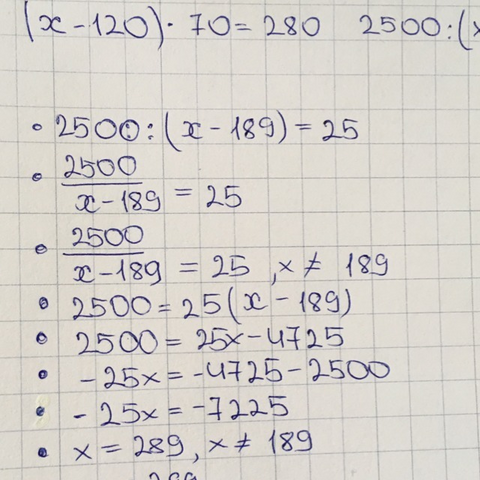 (x-120)·70=280 2500:(x
• 2500:(x-189)=25
• 2500/x-189 = 25
• 2500/x-189 = 25, x≠ 189
• 2500=25(x-189)
• 2500= 25x-4725
• -25x=-4725-2500
• -25x=-7225
• x=289, x≠ 189